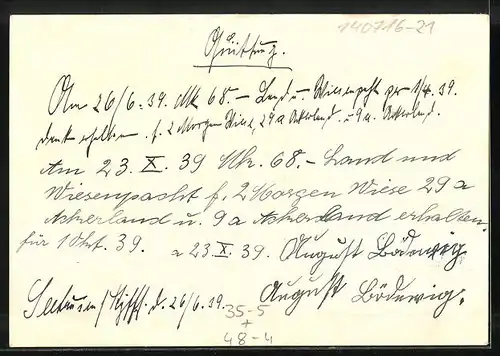 140716-21
Quittung.
Am 26/6. 39. Mk 68.- Land u. Wiesenpacht per 1/4. 39.
dankend erhalten. f. 2 Morgen Wiese, 29 a Ackerland. u 9 a. Ackerland.
Am 23. X. 39 Mk. 68.- Land und
Wiesenpacht f. 2 Morgen Wiese 29 a
Ackerland u. 9 a Ackerland erhalten.
für 1 Okt. 39. a 23. X. 39. August Bödewig
Seehausen / d. 26/6. 39. August Bödewig.
35-5
+
48-4